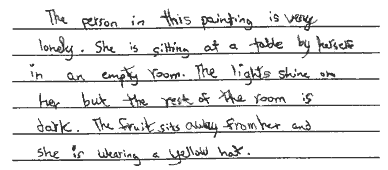 The person in this painting is very
lonely. She is sitting at a table by herself
in an empty room. The lights shine on
her but the rest of the room is
dark. The fruit sits away from her and
she is wearing a yellow hat.